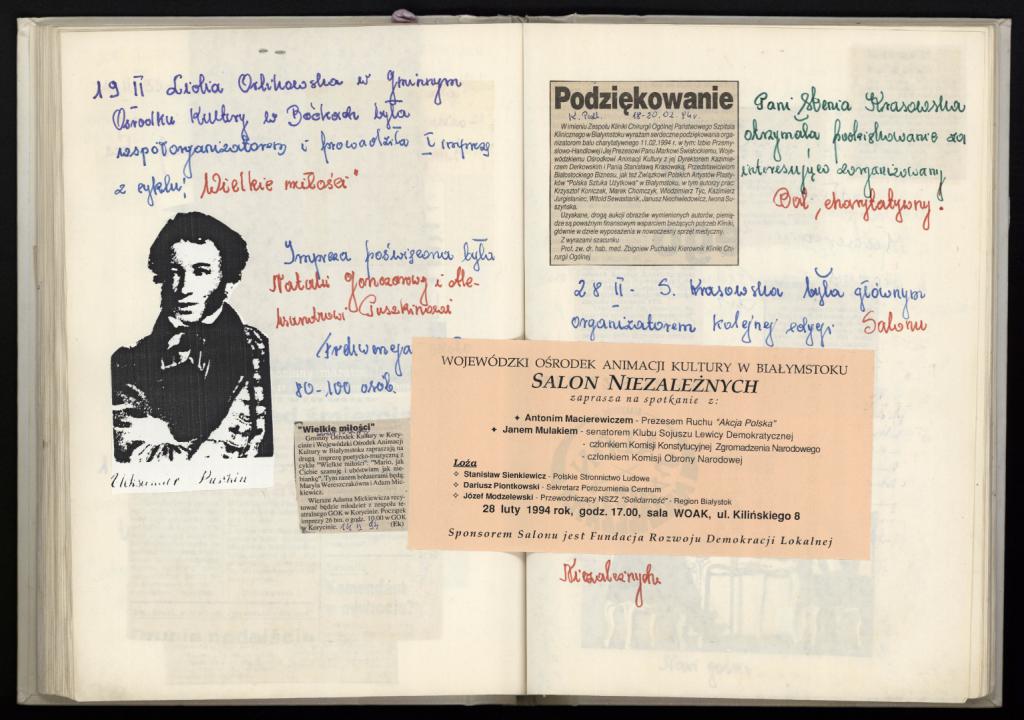 19 II Lidia Ostikowska w Gminnym
Ośrodku Kultury w Boćkach była
współorganizatorem i prowadziła I imprezę
z cyklu: "Wielkie miłości"
Impreza poświęcona była
Natalii Gonczarowej i Ale-
ksandrowi Puszkinowi
Frekwencja
80-100 osób.
Aleksander Puszkin
"Wielkie miłości"
Gminny Ośrodek Kultury w Kory-
cinie i Wojewódzki Ośrodek Animacji
Kultury w Białymstoku zapraszają na
drugą imprezę poetycko-muzyczną z
cyklu "Wielkie miłości": "Mario, jak
Ciebie szanuję i ubóstwiam jak nie-
biankę". Tym razem bohaterami będą:
Maryla Wereszczakówna i Adam Mic-
kiewicz.
Wiersze Adama Mickiewicza recy-
tować będzie młodzież z zespołu te-
atralnego GOK w Korycinie. Początek
imprezy 26 bm. o godz. 10.00 w GOK
w Korycinie. (Ek)
Podziękowanie
K. Podl. 18-20.02.94r.
W imieniu Zespołu Kliniki Chirurgii Ogólnej Państwowego Szpitala
Klinicznego w Białymstoku wyrażam serdeczne podziękowania orga-
nizatorom balu charytatywnego 11.02.1994 r. w tym: Izbie Przemy-
słowo-Handlowej i Jej Prezesowi Panu Markowi Świsłockiemu, Woje-
wódzkiemu Ośrodkowi Animacji Kultury z jej Dyrektorem Kazimie-
rzem Derkowskim i Panią Stanisławą Krasowską, Przedstawicielom
Białostockiego Biznesu, jak też Związkowi Polskich Artystów Plasty-
ków "Polska Sztuka Użytkowa" w Białymstoku, w tym autorzy prac:
Krzysztof Koniczak, Marek Chomczyk, Włodzimierz Tyc, Kazimierz
Jurgielaniec, Witold Sewastianik, Janusz Niechwiedowicz, Iwona So-
szyńska.
Uzyskane, drogą aukcji obrazów wymienionych autorów, pienią-
dze są poważnym finansowym wsparciem bieżących potrzeb Kliniki,
głównie w dziele wyposażenia w nowoczesny sprzęt medyczny.
Z wyrazami szacunku
Prof. zw. dr. hab. med. Zbigniew Puchalski Kierownik Kliniki Chi-
rurgii Ogólnej
Pani Stenia Krasowska
otrzymała podziękowanie za
interesująco zorganizowany
Bal, charytatywny.
28 II - S. Krasowska była głównym
organizatorem kolejnej edycji Salonu
WOJEWÓDZKI OŚRODEK ANIMACJI KULTURY W BIAŁYMSTOKU
SALON NIEZALEŻNYCH
zaprasza na spotkanie z:
✦ Antonim Macierewiczem - Prezesem Ruchu "Akcja Polska"
✦ Janem Mulakiem - senatorem Klubu Sojuszu Lewicy Demokratycznej
- członkiem Komisji Konstytucyjnej Zgromadzenia Narodowego
- członkiem Komisji Obrony Narodowej
Loża
❖ Stanisław Sienkiewicz - Polskie Stronnictwo Ludowe
❖ Dariusz Piontkowski - Sekretarz Porozumienia Centrum
❖ Józef Modzelewski - Przewodniczący NSZZ "Solidarność" - Region Białystok
28 luty 1994 rok, godz. 17.00, sala WOAK, ul. Kilińskiego 8
Sponsorem Salonu jest Fundacja Rozwoju Demokracji Lokalnej
Niezależnych